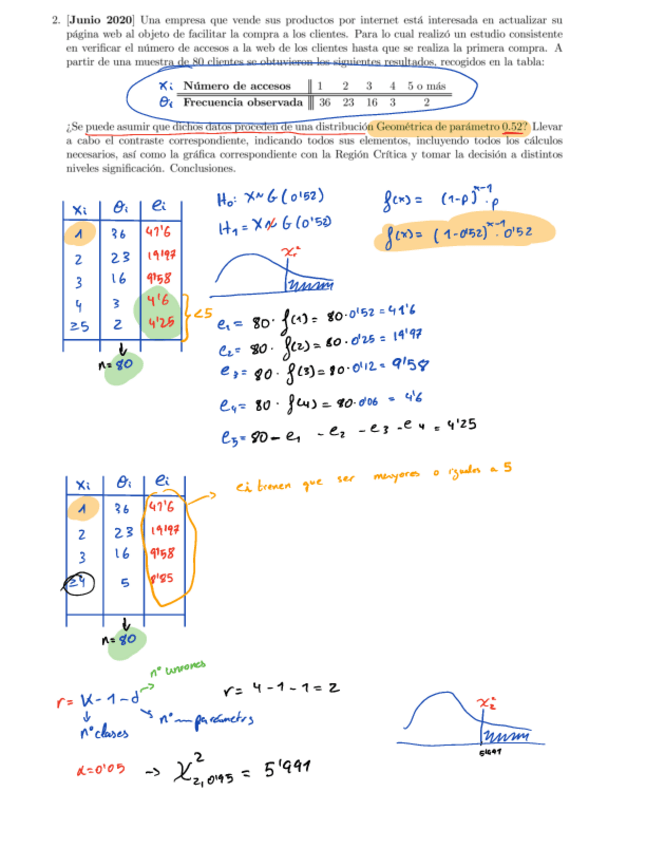 2. [Junio 2020] Una empresa que vende sus productos por internet está interesada en actualizar su
página web al objeto de facilitar la compra a los clientes. Para lo cual realizó un estudio consistente
en verificar el número de accesos a la web de los clientes hasta que se realiza la primera compra. A
partir de una muestra de 80 clientes se obtuvieron los siguientes resultados, recogidos en la tabla:
Xi Número de accesos 1 2 3 4 5 o más
θi Frecuencia observada 36 23 16 3 2
¿Se puede asumir que dichos datos proceden de una distribución Geométrica de parámetro 0.52? Llevar
a cabo el contraste correspondiente, indicando todos sus elementos, incluyendo todos los cálculos
necesarios, así como la gráfica correspondiente con la Región Crítica y tomar la decisión a distintos
niveles significación. Conclusiones.
H₀: X~G(0'52)
H₁ = X≁G(0'52)
f(x) = (1-p)^x-1 · p
f(x) = (1-0'52)^x-1 · 0'52
Xi θi ei
1 36 41'6
2 23 19'97
3 16 9'58
4 3 4'6
≥5 2 4'25
<5
n=80
e₁ = 80 · f(1) = 80·0'52 = 41'6
e₂ = 80 · f(2) = 80·0'25 = 19'97
e₃ = 80 · f(3) = 80·0'12 = 9'58
e₄ = 80 · f(4) = 80·0'06 = 4'6
e₅ = 80 - e₁ - e₂ - e₃ - e₄ = 4'25
Xi θi ei
1 36 41'6
2 23 19'97
3 16 9'58
≥4 5 8'85
n=80
ei tienen que ser mayores o iguales a 5
nº uniones
r = K-1-d
nº clases
r = 4-1-1=2
α=0'05 → χ²₂,₀'₉₅ = 5'991
χ²₂
5'991